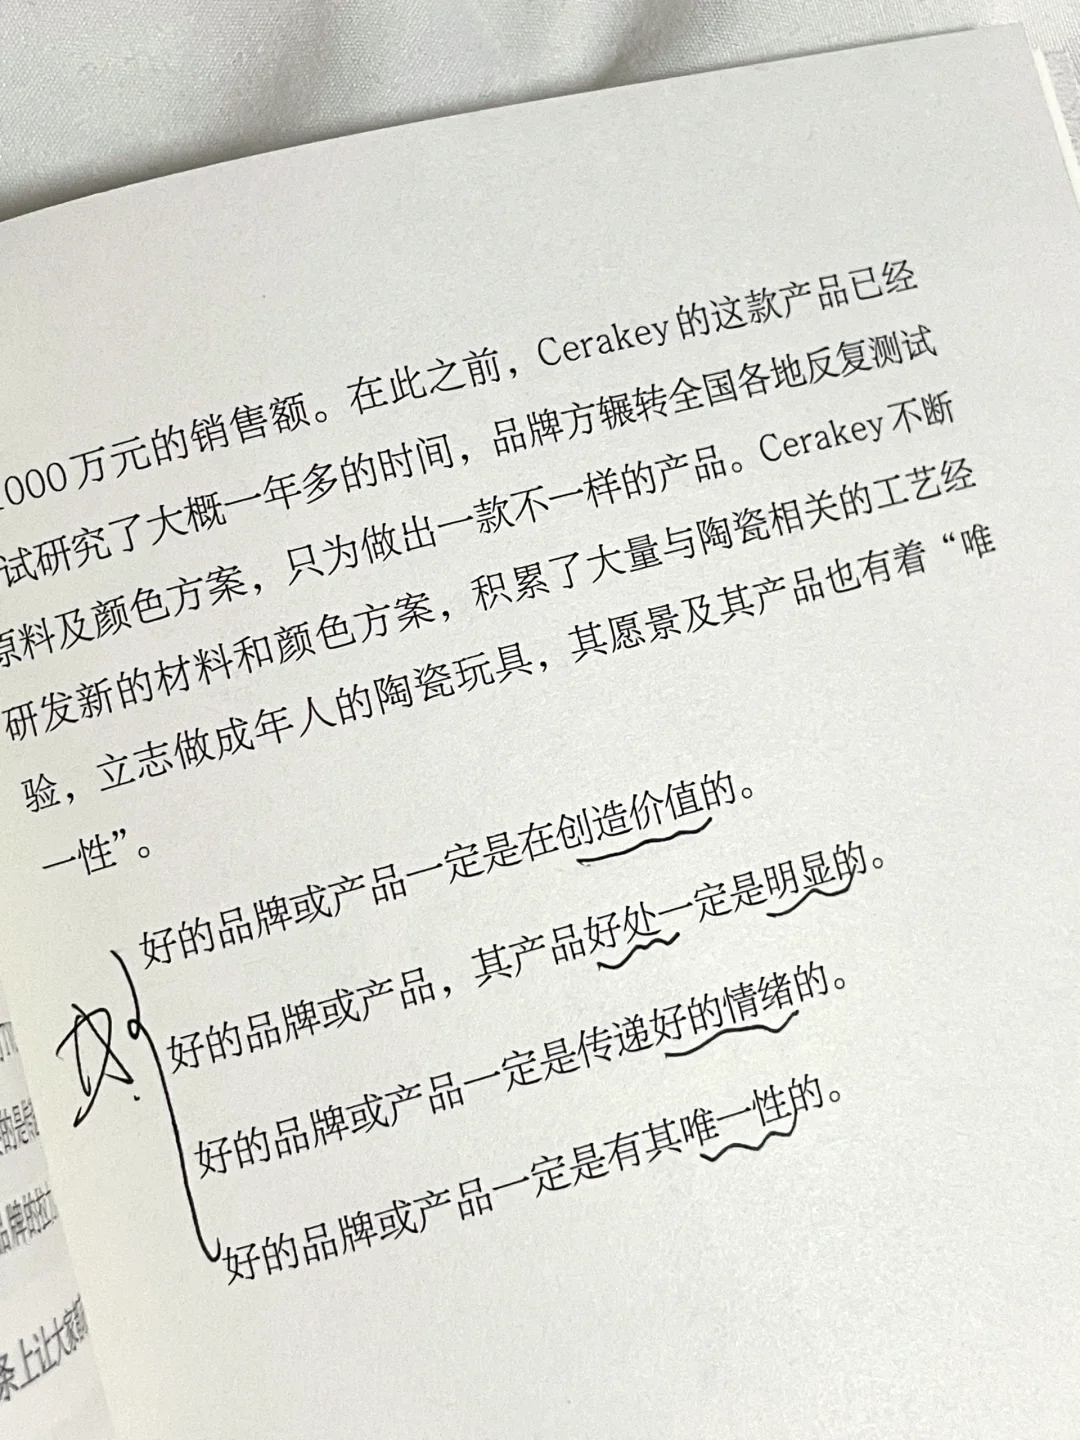 1000万元的销售额。在此之前，Cerakey的这款产品已经
试研究了大概一年多的时间，品牌方辗转全国各地反复测试
原料及颜色方案，只为做出一款不一样的产品。Cerakey不断
研发新的材料和颜色方案，积累了大量与陶瓷相关的工艺经
验，立志做成年人的陶瓷玩具，其愿景及其产品也有着“唯
一性”。
好的品牌或产品一定是在创造价值的。
好的品牌或产品，其产品好处一定是明显的。
好的品牌或产品一定是传递好的情绪的。
好的品牌或产品一定是有其唯一性的。
的是
品牌的
条上让大家